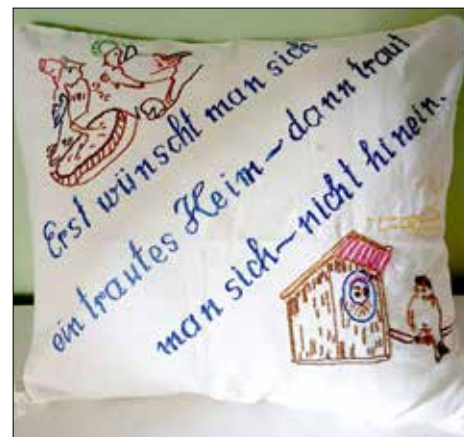 Erst wünscht man sich
ein trautes Heim – dann traut
man sich – nicht hinein.